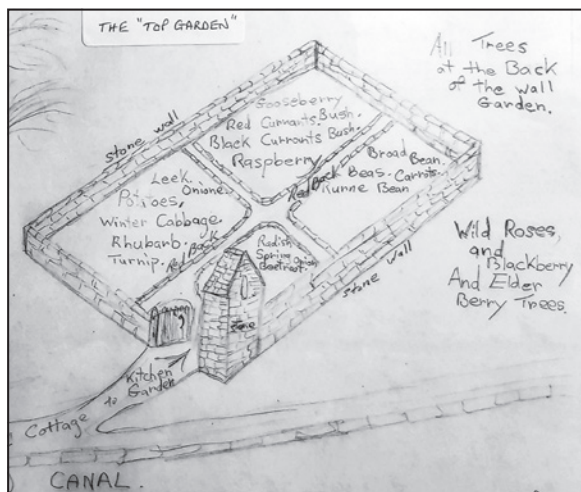 THE "TOP GARDEN"
All Trees
at the Back
of the wall
Garden.
stone wall
Gooseberry Bush.
Red Currants
Black Currants Bush.
Raspberry
Broad Bean.
Carrots.
Beas.
Runne Bean
Red Back
Leek
Onione
Potatoes,
Winter Cabbage
Rhubarb.
Turnip.
Red Back
Radish
Spring Onion
Beetroot.
stone wall
Wild Roses,
and
Blackberry
And Elder
Berry Trees.
Kitchen
Garden
Cottage to
CANAL.